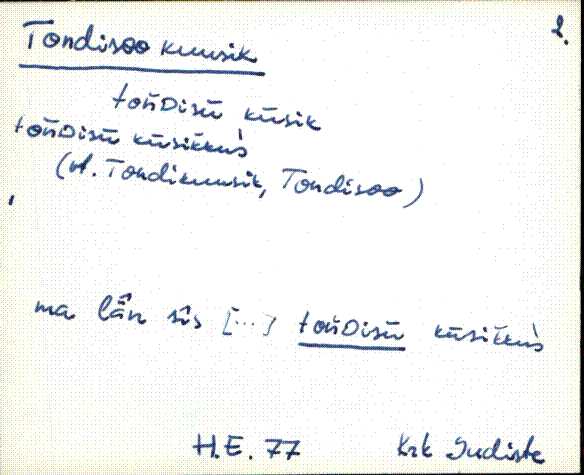 2.
Tondisoo kuusik
tońDisū kūsik
tońDisū kūsikkus
(vt. Tondikuusik, Tondisoo)
ma lǟn sīs [...] tońDisū kūsikkus
H.E. 77 Krk Judiste